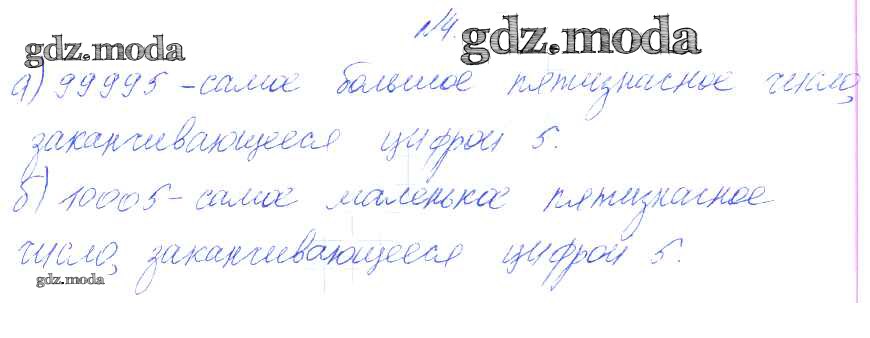 №4.
gdz.moda
gdz.moda
а) 99995 - самое большое пятизначное число,
заканчивающееся цифрой 5.
б) 10005 - самое маленькое пятизначное
число, заканчивающееся цифрой 5.
gdz.moda